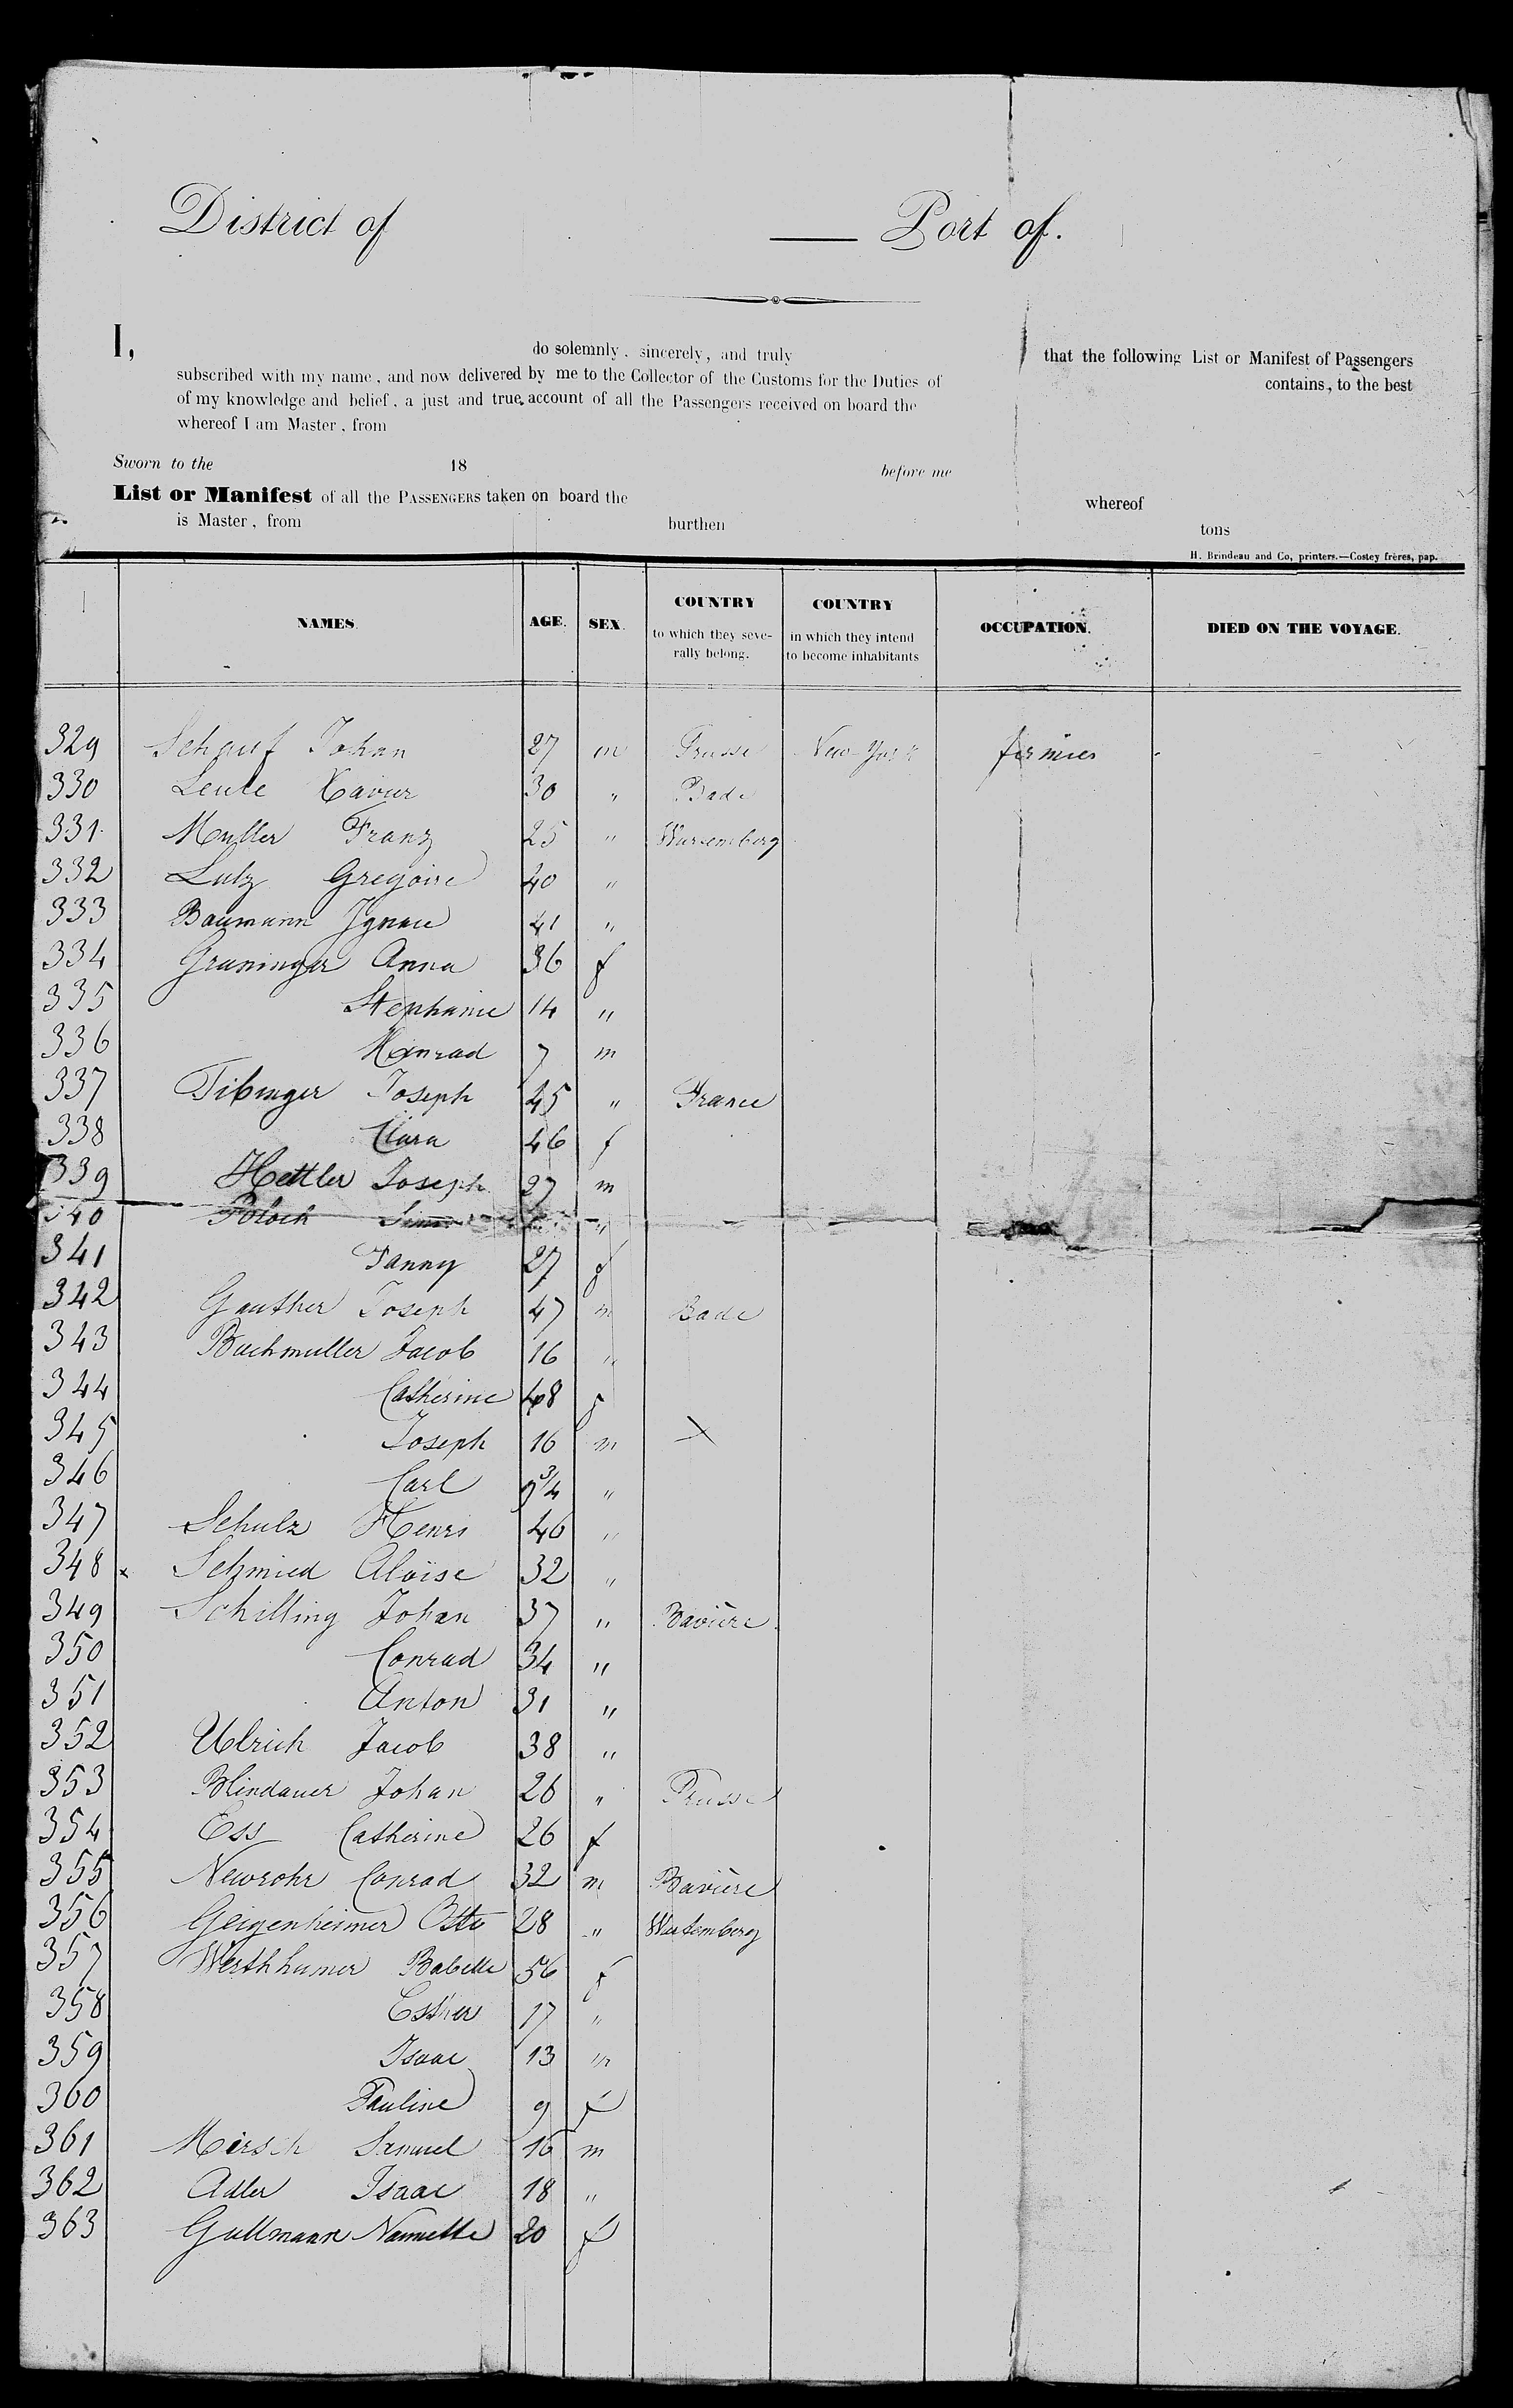 District of — Port of.
I, do solemnly, sincerely, and truly that the following List or Manifest of Passengers
subscribed with my name, and now delivered by me to the Collector of the Customs for the Duties of contains, to the best
of my knowledge and belief, a just and true account of all the Passengers received on board the
whereof I am Master, from
Sworn to the 18 before me
List or Manifest of all the PASSENGERS taken on board the whereof
is Master, from burthen tons
H. Brindeau and Co, printers.—Costey frères, pap.
NAMES. AGE. SEX. COUNTRY to which they severally belong. COUNTRY in which they intend to become inhabitants OCCUPATION. DIED ON THE VOYAGE.
329 Johan 27 m Prusse New-York
330 Xavier 30 " Bade
331 Muller Franz 25 " Wurtemberg
332 Lutz Gregoire 40 "
333 Baumann Ignace 41 "
334 Gruninger Anna 36 f
335 Stephanie 14 "
336 Konrad 7 m
337 Tibinger Joseph 45 " France
338 Clara 46 f
339 Hettler Joseph 27 m
340 "
341 Fanny 27 f
342 Gauther Joseph 47 m Bade
343 Bachmuller Jacob 16 "
344 Catherine 48 f
345 Joseph 16 m X
346 Carl 9 3/4 "
347 Schulz Henri 46 "
348 x Schmied Aloïse 32 "
349 Schilling Johan 37 " Bavière
350 Conrad 34 "
351 Anton 31 "
352 Ulrich Jacob 38 "
353 Blindauer Johan 26 " Prusse
354 Ess Catherine 26 f
355 Newrohr Conrad 32 m Bavière
356 Geigenheimer Otto 28 " Wurtemberg
357 Werthhumer Babette 56 f
358 Esther 17 "
359 Isaac 13 m
360 Pauline 9 f
361 Samuel 16 m
362 Adler Isaac 18 "
363 Gullmann Nannette 20 f